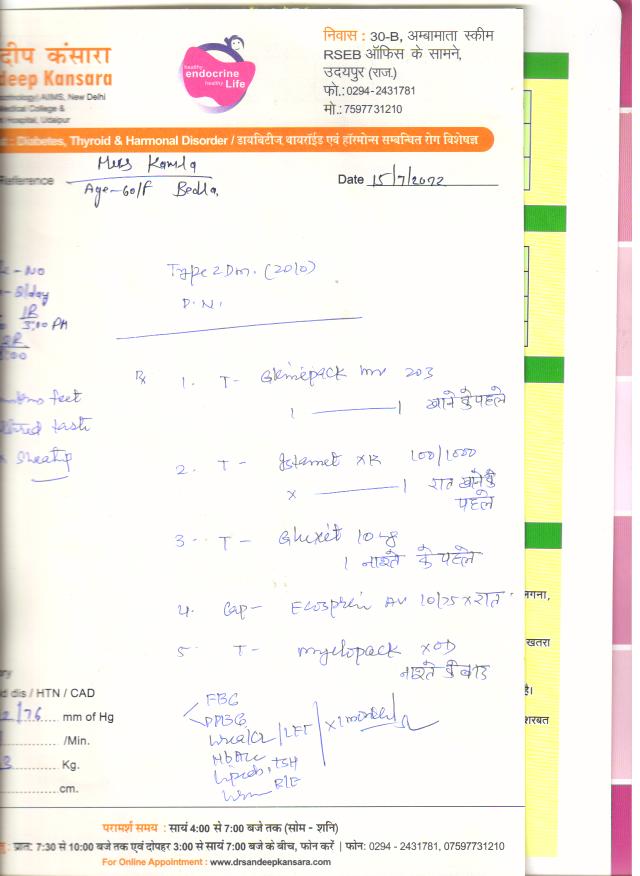 दीप कंसारा
deep Kansara
AIIMS, New Delhi
Medical College &
Hospital, Udaipur
healthy
endocrine
healthy Life
निवास : 30-B, अम्बामाता स्कीम
RSEB ऑफिस के सामने,
उदयपुर (राज.)
फो.:0294-2431781
मो.:7597731210
: Diabetes, Thyroid & Harmonal Disorder / डायबिटीज थायरॉईड एवं हॉरमोन्स सम्बन्धित रोग विशेषज्ञ
Reference
Age-60/F Bedla,
Date 15/7/2022
- NO
/day
3:00 PM
feet
Type 2 Dm. (2010)
D.N.
Rx
1. T- Glimepack mv 203
1 ——— 1 खाने के पहले
2. T- Istamet XR 100/1000
x ——— 1 रात खाने के
पहले
3. T- Gluxit 10
1 नाश्ते के पहले
4. Cap- Ecosprin AV 10/75 x रात
5. T- myelopack x OD
नाश्ते के बाद
FBG
PPBG
Urea/Cr / LFT
HbA1c
Lipids, TSH
R/E
x 1 month
dis / HTN / CAD
2/76 mm of Hg
/Min.
3 Kg.
cm.
लगना,
खतरा
है।
शरबत
परामर्श समय : सायं 4:00 से 7:00 बजे तक (सोम - शनि)
: प्रातः 7:30 से 10:00 बजे तक एवं दोपहर 3:00 से सायं 7:00 बजे के बीच, फोन करें | फोन: 0294 - 2431781, 07597731210
For Online Appointment : www.drsandeepkansara.com